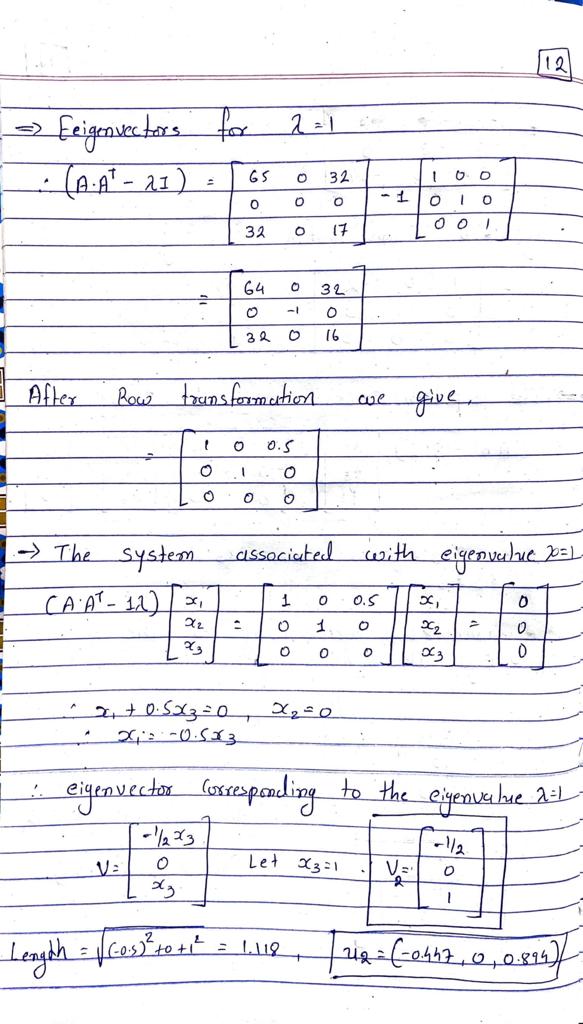 12
⇒ Eeigenvectors for λ=1
∴ (A·Aᵀ - λI) = [65 0 32; 0 0 0; 32 0 17] - 1 [1 0 0; 0 1 0; 0 0 1]
= [64 0 32; 0 -1 0; 32 0 16]
After Row transformation we give,
= [1 0 0.5; 0 1 0; 0 0 0]
→ The system associated with eigenvalue λ=1
(A·Aᵀ - 1λ) [x₁; x₂; x₃] = [1 0 0.5; 0 1 0; 0 0 0] [x₁; x₂; x₃] = [0; 0; 0]
∴ x₁ + 0.5x₃ = 0, x₂ = 0
∴ x₁ = -0.5x₃
∴ eigenvector corresponding to the eigenvalue λ=1
V = [-1/2 x₃; 0; x₃] Let x₃=1 . V₂ = [-1/2; 0; 1]
Length = √(-0.5)² + 0 + 1² = 1.118, u₂ = (-0.447, 0, 0.894)